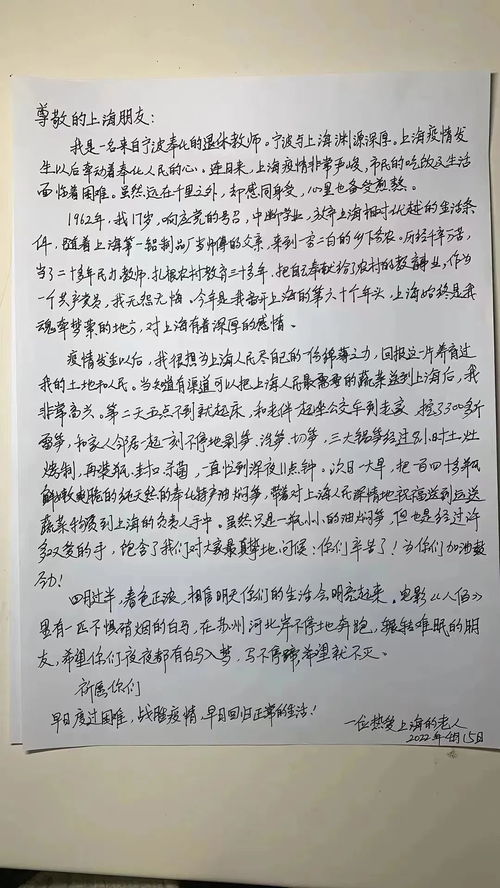 尊敬的上海朋友：
我是一名来自宁波奉化的退休教师。宁波与上海渊源深厚。上海疫情发
生以后牵动着奉化人民的心。连日来，上海疫情非常严峻，市民的吃饭及生活
面临着困难。虽然远在千里之外，却感同身受，心里也备受煎熬。
1962年，我17岁，响应党的号召，中断学业，放弃上海相对优越的生活条
件，随着上海第一铝制品厂当师傅的父亲，来到一穷二白的乡下务农。历经千辛万苦，
当了二十多年民办教师，扎根农村教育三十多年，把自己奉献给了农村的教育事业，作为
一个共产党员，我无怨无悔。今年是我离开上海的第六十个年头，上海始终是我
魂牵梦萦的地方，对上海有着深厚的感情。
疫情发生以后，我很想为上海人民尽自己的一份绵薄之力，回报这一片养育过
我的土地和人民。当知道有渠道可以把上海人民最需要的蔬菜送到上海后，我
非常高兴。第二天五点不到就起床，和老伴一起坐公交车到老家，挖了300多斤
雷笋，和家人邻居一起一刻不停地剥笋、洗笋、切笋，三大锅笋经过9小时土灶
烧制，再装瓶、封口、杀菌，一直忙到深夜11点钟。次日一大早，把一百四十多瓶
鲜嫩爽脆的纯天然的奉化特产油焖笋，带着对上海人民深情地祝福送到运送
蔬菜物资到上海的负责人手中。虽然只是一瓶小小的油焖笋，但也是经过许
多双爱的手，饱含了我们对大家最真挚地问候：你们辛苦了！为你们加油鼓
劲！
四月过半，春色正浓，相信明天你们的生活会明亮起来。电影《八佰》
里有一匹不惧硝烟的白马，在苏州河北岸不停地奔跑，辗转难眠的朋
友，希望你们夜夜都有白马入梦，马不停蹄，希望就不灭。
祈愿你们
早日度过困难，战胜疫情，早日回归正常的生活！
一位热爱上海的老人
2022年4月15日